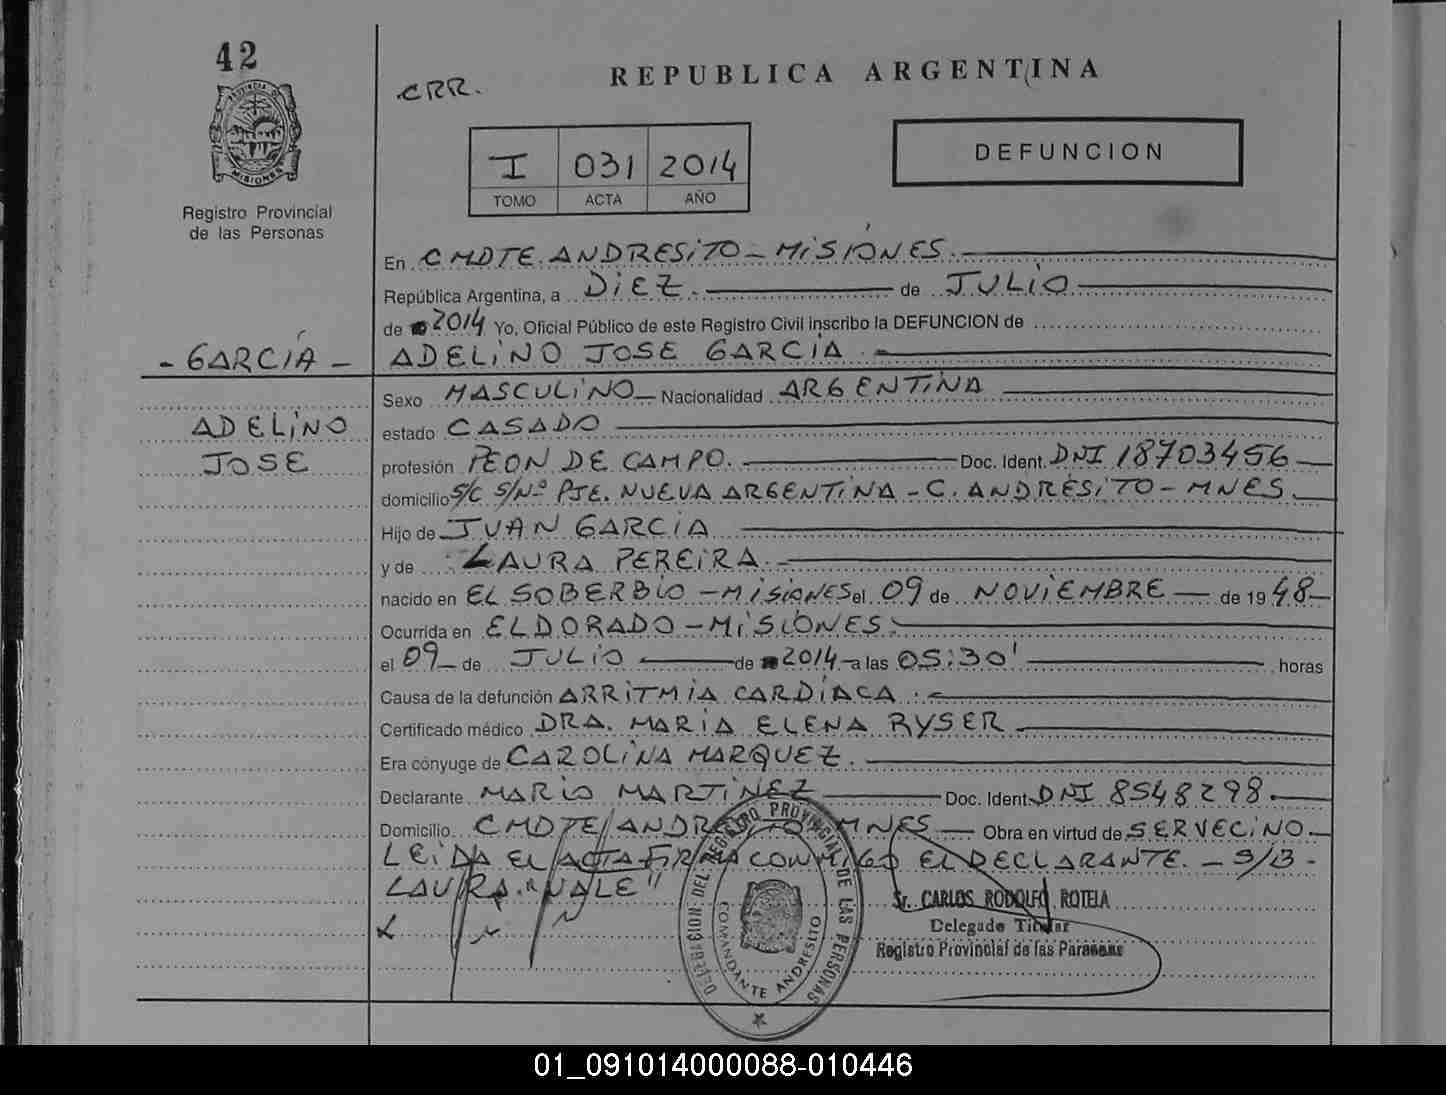 42
PROVINCIA DE
MISIONES
Registro Provincial
de las Personas
- GARCÍA -
ADELINO
JOSE
CRR.
REPUBLICA ARGENTINA
I 031 2014
TOMO ACTA AÑO
DEFUNCION
En CMDTE. ANDRESITO - MISIONES.
República Argentina, a DIEZ. de JULIO
de 2014 Yo, Oficial Público de este Registro Civil inscribo la DEFUNCION de
ADELINO JOSE GARCIA.
Sexo MASCULINO Nacionalidad ARGENTINA
estado CASADO
profesión PEON DE CAMPO. Doc. Ident. DNI 18703456
domicilio S/C S/Nº PJE. NUEVA ARGENTINA - C. ANDRESITO - MNES.
Hijo de JUAN GARCIA
y de LAURA PEREIRA.
nacido en EL SOBERBIO - MISIONES el 09 de NOVIEMBRE de 19 48
Ocurrida en ELDORADO - MISIONES.
el 09 de JULIO de 2014 a las 05:30' horas
Causa de la defunción ARRITMIA CARDIACA.
Certificado médico DRA. MARIA ELENA RYSER
Era cónyuge de CAROLINA MARQUEZ.
Declarante MARIO MARTINEZ Doc. Ident. DNI 8548298.
Domicilio CMDTE ANDRESITO MNES Obra en virtud de SER VECINO
LEIDA EL ACTA FIRMA CONMIGO EL DECLARANTE. - S/B -
LAURA. "VALE"
DELEGACION DEL REGISTRO PROVINCIAL DE LAS PERSONAS
COMANDANTE ANDRESITO
Sr. CARLOS RODOLFO ROTELA
Delegado Titular
Registro Provincial de las Personas
01_091014000088-010446